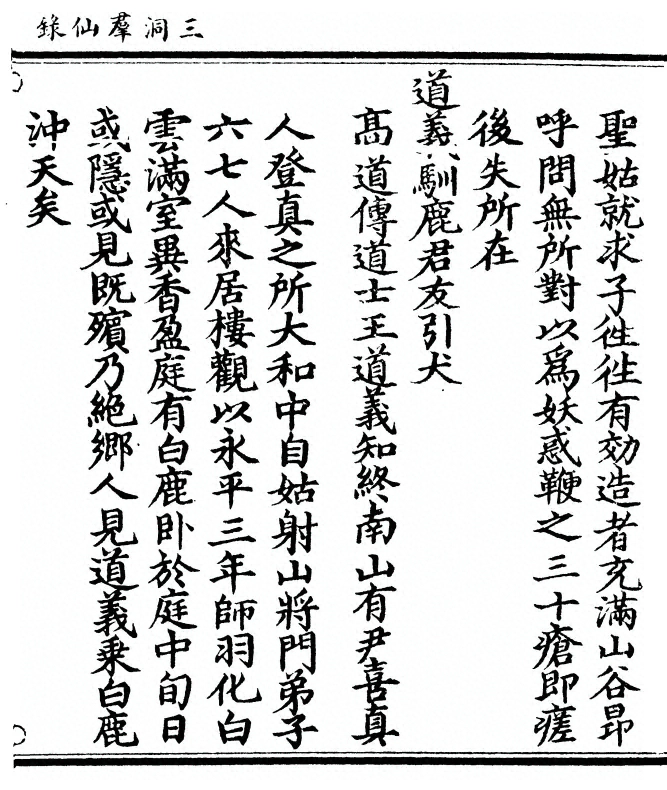 三洞羣仙錄
聖姑就求子徃徃有効造者充滿山谷昂
呼問無所對以爲妖惑鞭之三十瘡即瘥
後失所在
道義馴鹿君友引犬
髙道傳道士王道義知終南山有尹喜真
人登真之所大和中自姑射山將門弟子
六七人來居樓觀以永平三年師羽化白
雲滿室異香盈庭有白鹿卧於庭中旬日
或隱或見既殯乃絶鄉人見道義乗白鹿
沖天矣